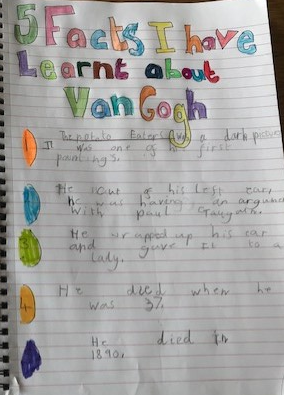 5 Facts I have
Learnt about
Van Gogh
1 The potato Eaters was a dark picture
It was one of his first
paintings.
He cut of his left ear,
he was having an argument
with paul
3 He wrapped up his ear
and gave it to a
lady.
4 He died when he
was 37.
He died in
1890.